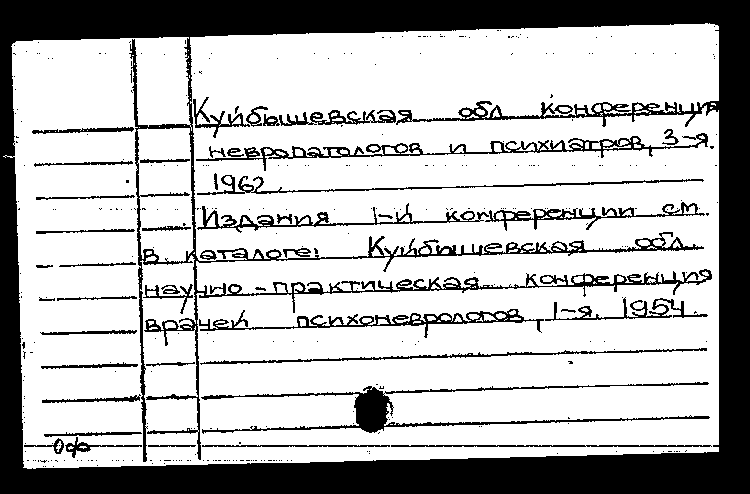 Куйбышевская обл конференция
невропатологов и психиатров, 3-я.
1962.
Издания 1-й конференции см.
в каталоге: Куйбышевская обл.
научно-практическая конференция
врачей психоневрологов, 1-я. 1954.
Офо